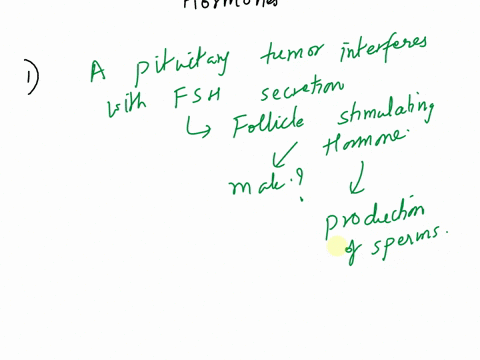 Hormones
1) A pituitary tumor interferes
with FSH secretion
↳ Follicle stimulating
Hormone.
male?
production
of sperms.